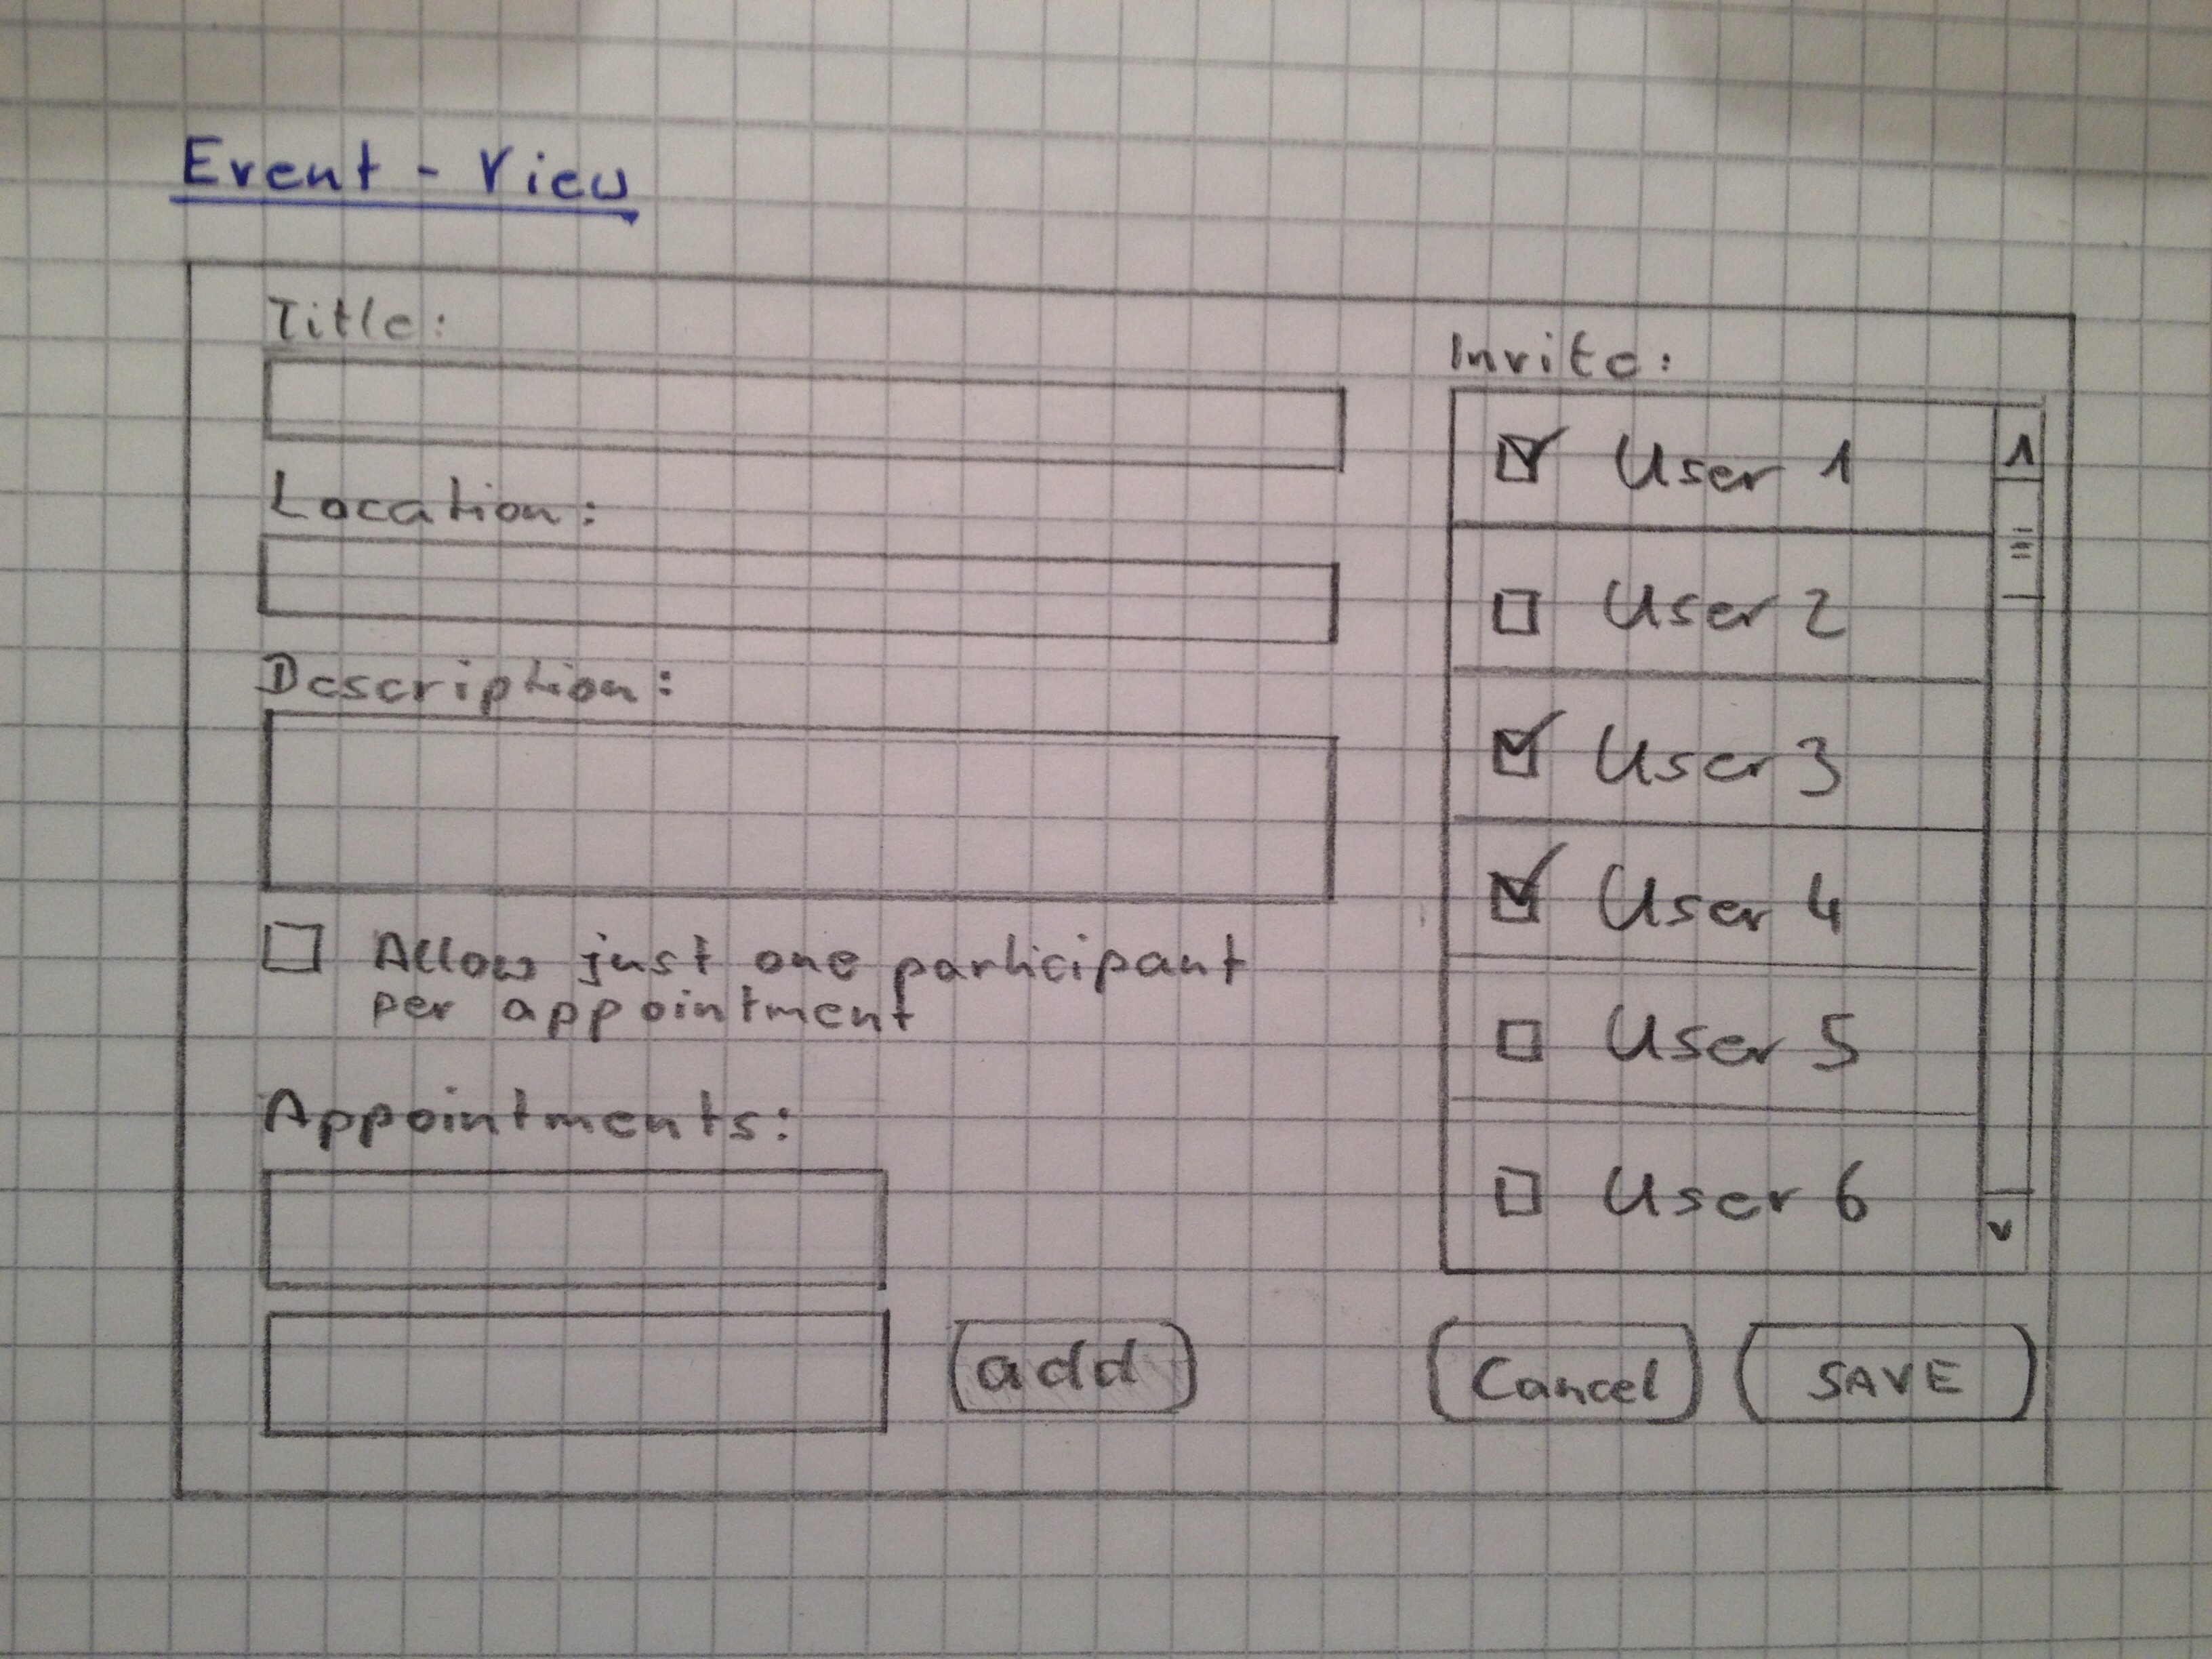 Event - View
Title:
Location:
Description:
Allow just one participant
per appointment
Appointments:
add
Invite:
User 1
User 2
User 3
User 4
User 5
User 6
Cancel
SAVE